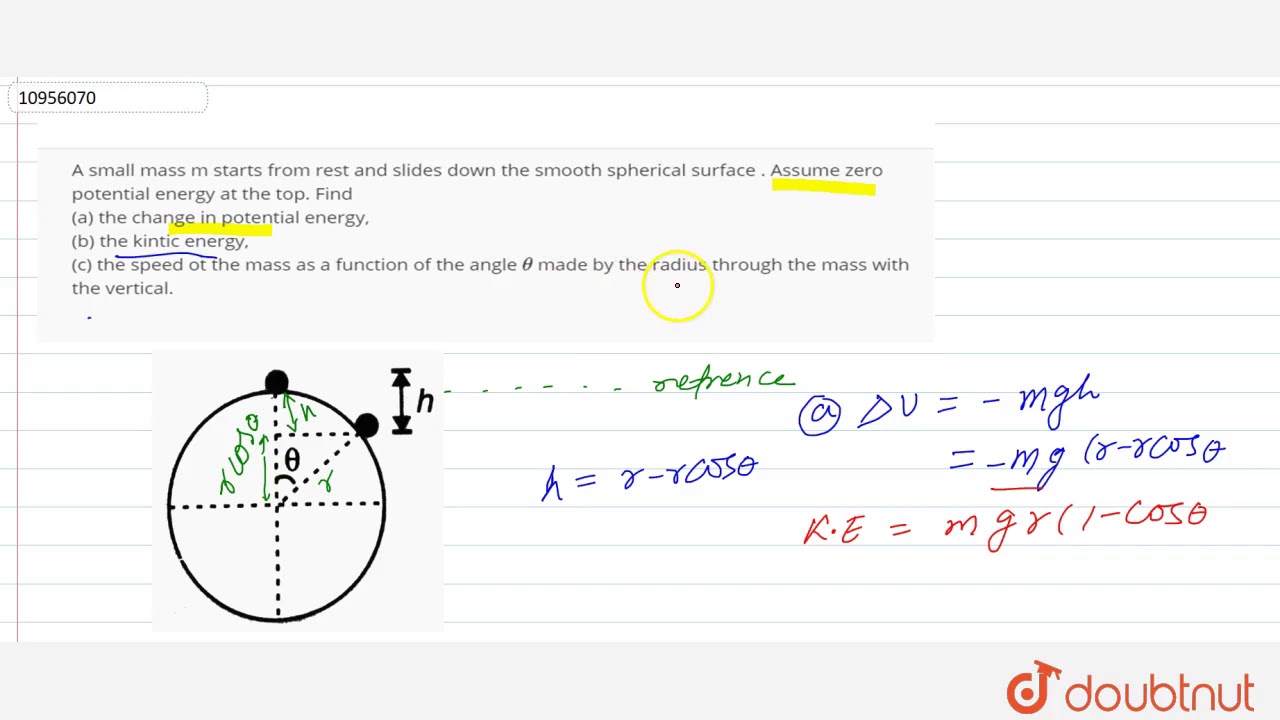 10956070
A small mass m starts from rest and slides down the smooth spherical surface . Assume zero
potential energy at the top. Find
(a) the change in potential energy,
(b) the kintic energy,
(c) the speed ot the mass as a function of the angle θ made by the radius through the mass with
the vertical.
h
refrence
(a) ΔU = - mgh
= -mg (r-rcosθ
h = r-rcosθ
K.E = mgr(1-cosθ
h
rcosθ
θ
r
doubtnut